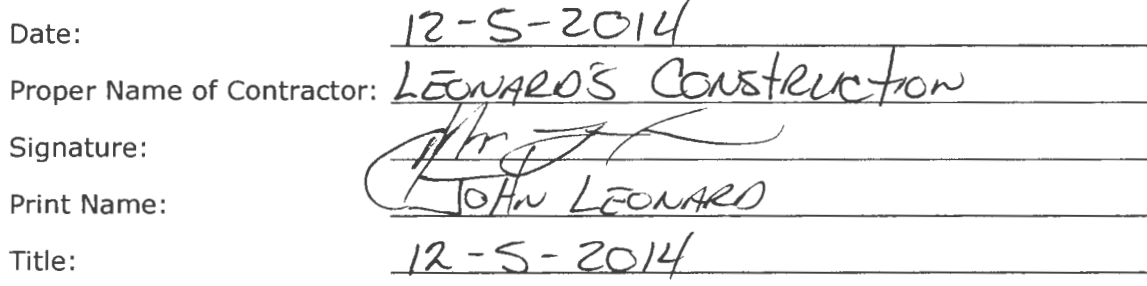 Date: 12-5-2014
Proper Name of Contractor: LEONARD'S CONSTRUCTION
Signature:
Print Name: JOHN LEONARD
Title: 12-5-2014